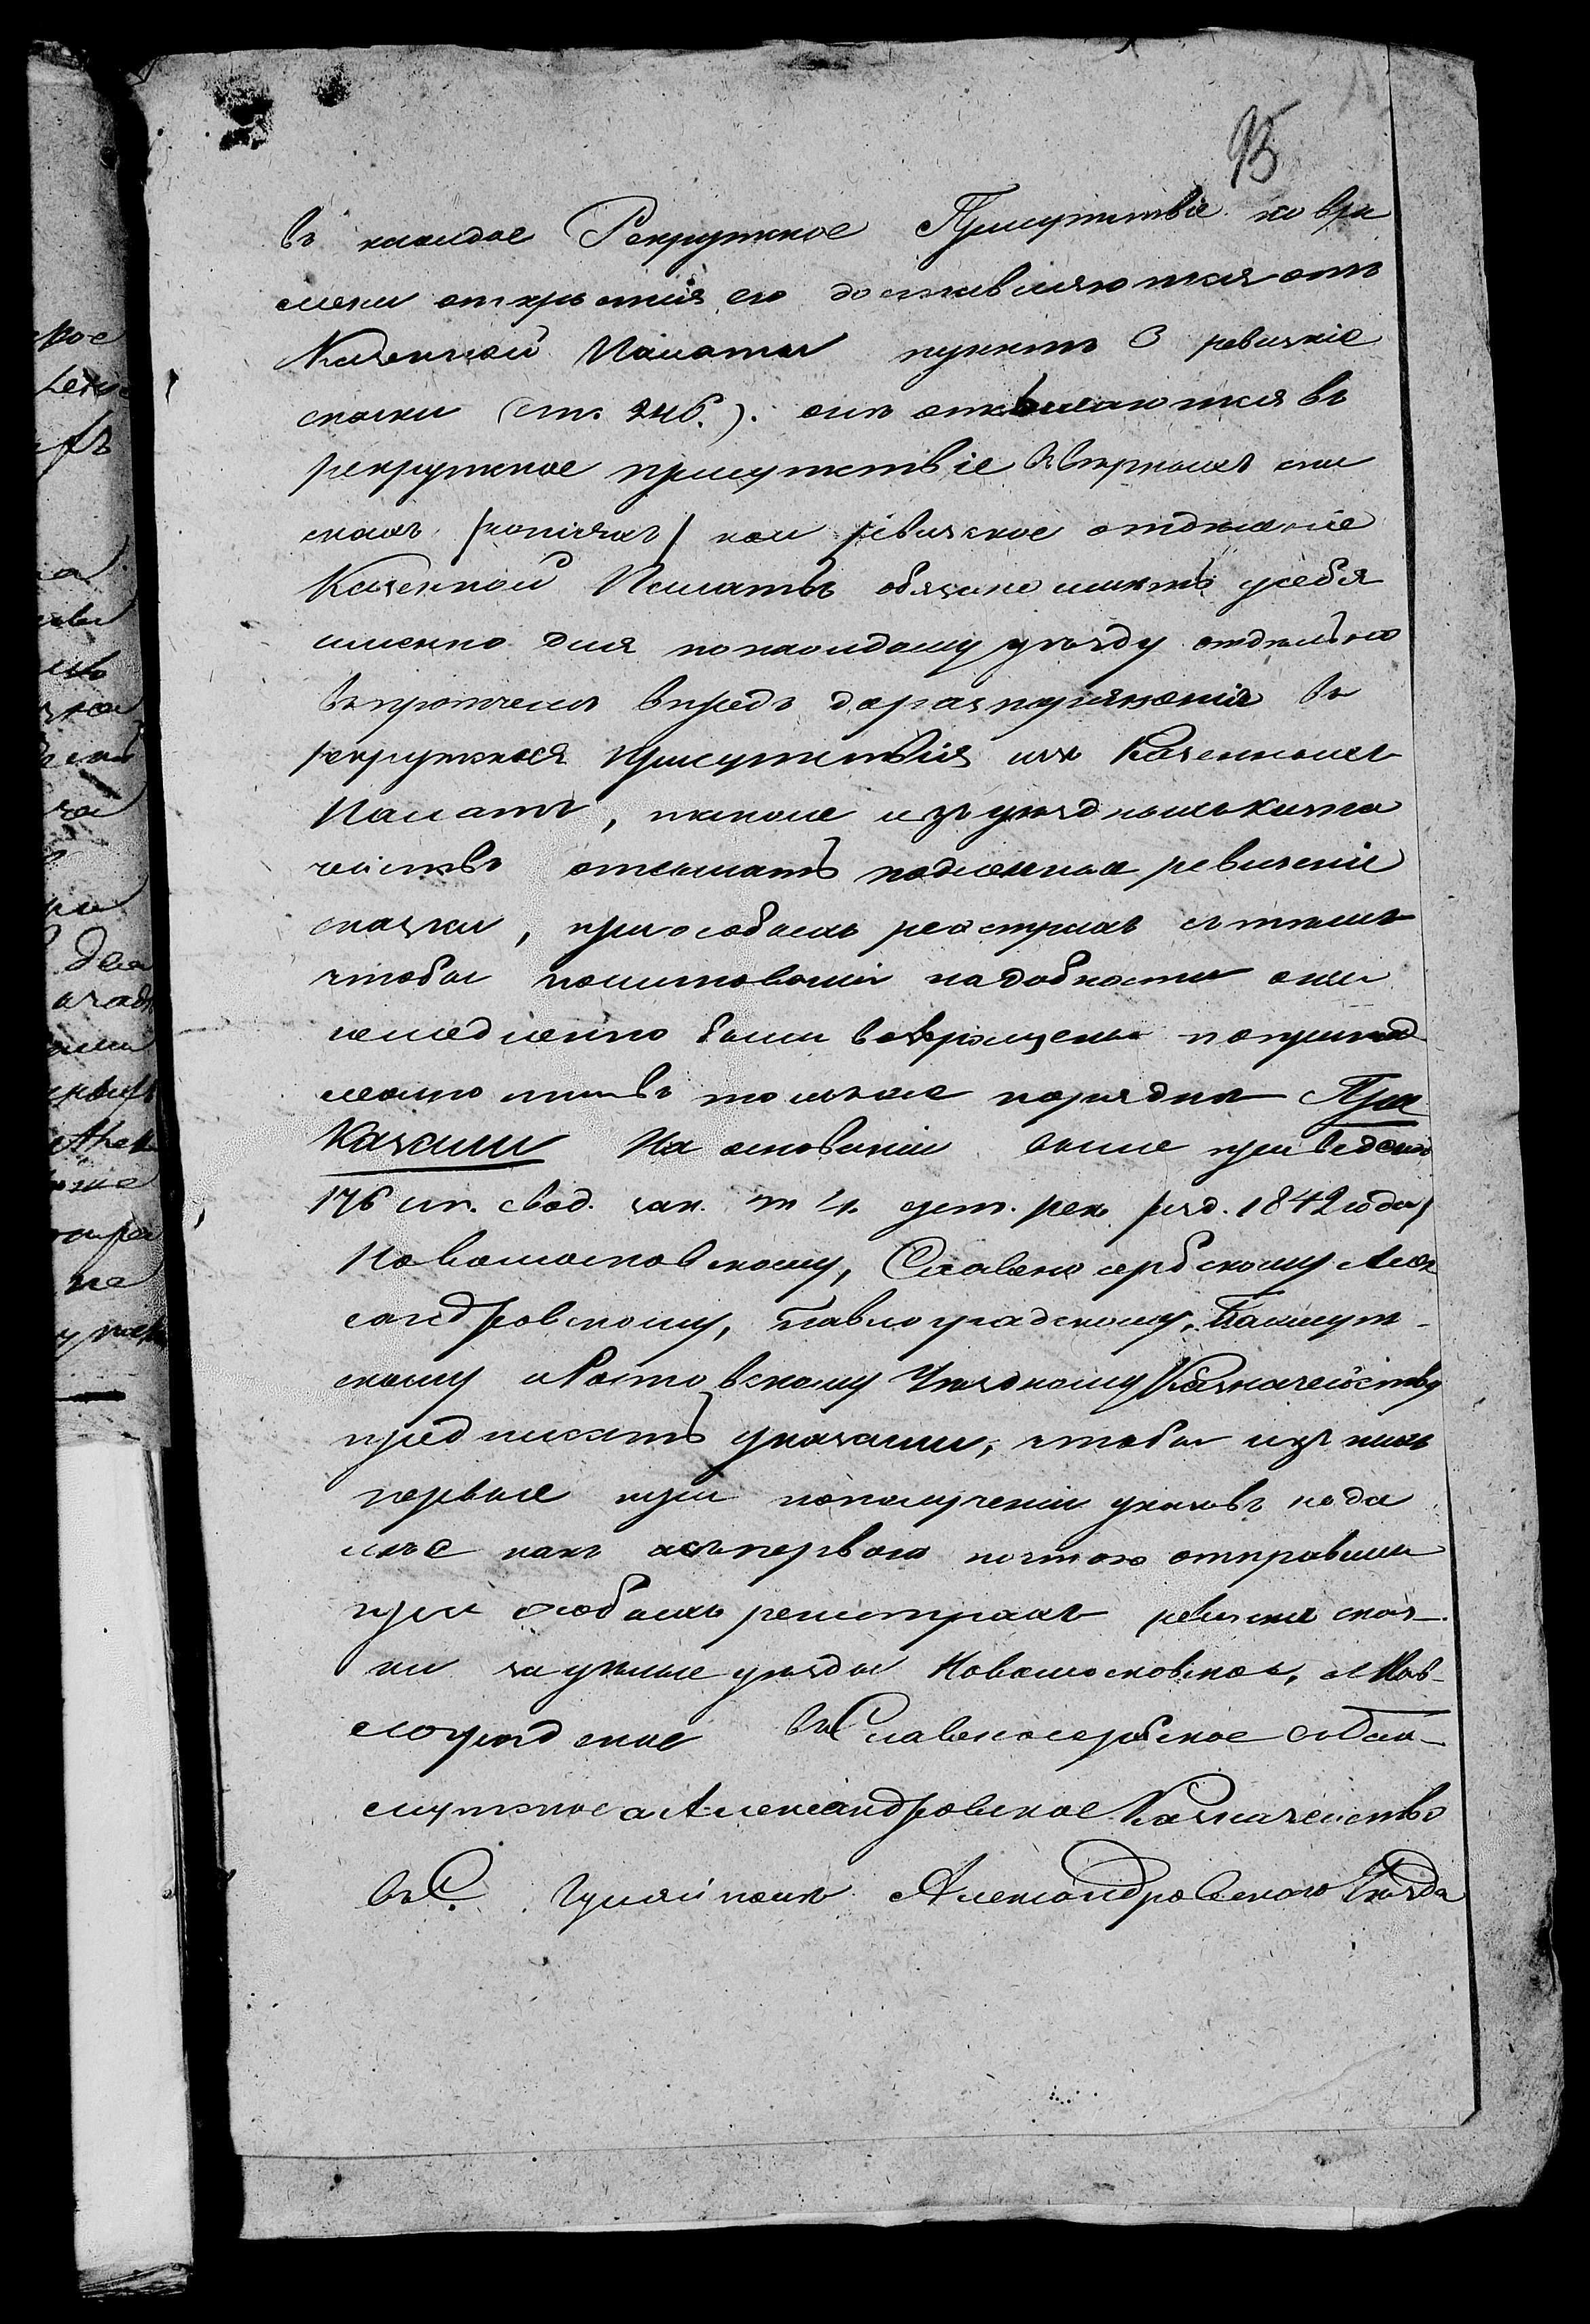 95
въ каждое Рекрутское Присутствіе ко вре
мени открытія его доставляются отъ
Казенной Палаты пунктъ 3 ревизкіе
сказки (ст. 246.). они отсылаются въ
рекрутское присутствіе въ верныхъ спи
скахъ /копіяхъ/ кои ревизское отделеніе
Казенной Палаты обязано иметь у себя
именно для по каждому уезду отдельно
въ протчемъ впредъ до распоряженія въ
рекрутскія присутствія изъ Казенныхъ
Палатъ, также изъ уездныхъ казна
чействъ отсылать подлинныя ревизскіе
сказки, при особыхъ реестрахъ съ темъ
чтобы по минованіи надобности они
немедленно были возвращены по принад
лежности въ томже порядке При
казали На основаніи выше приведеной
176 ст. свод. зак. т 4. уст. рек. изд. 1842 года
Новомосковскому, Славеносербскому Алек
сандровскому, Павлоградскому, Бахмут-
скому и Ростовскому Уездному Казначейству
предписать указами, чтобы изъ нихъ
первые при по полученіи указовъ не да
лее какъ съ первою почтою отправили
при особыхъ реестрахъ ревизскіе сказ-
ки за целые уезды Новомосковское, и Пав-
лоградское въ Славеносербское и Бах-
мутское а Александровское Казначейство
въ С. Гуляйполе Александровского Уезда